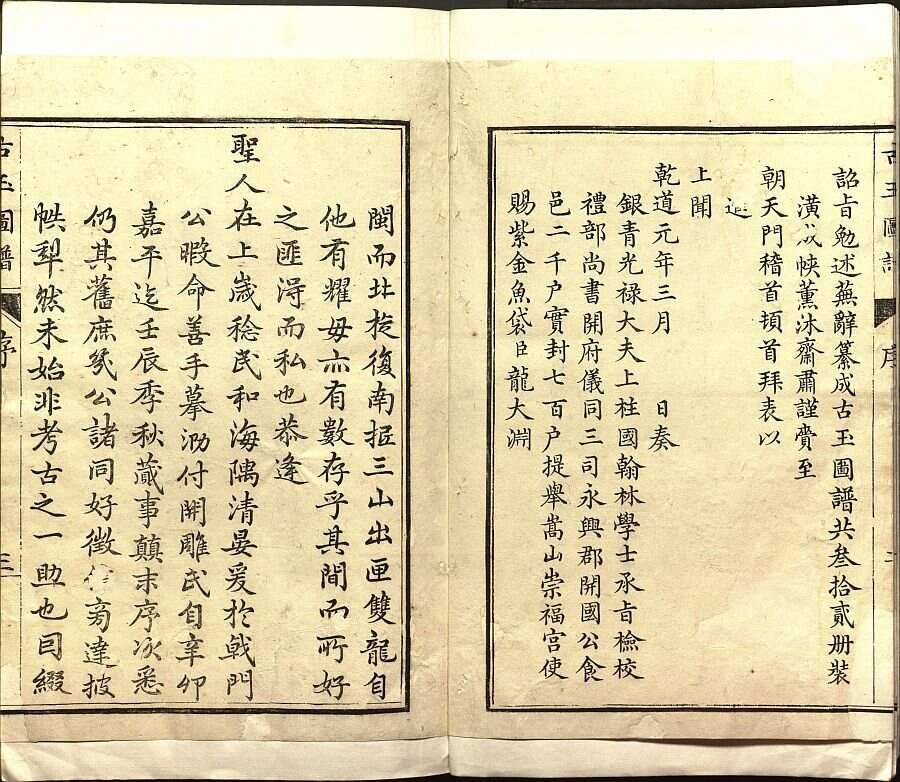 詔旨勉述蕪辭纂成古玉圖譜共叁拾貳册裝
潢成帙薰沐齋肅謹賫至
朝天門稽首頓首拜表以
進
上聞
乾道元年三月 日奏
銀青光禄大夫上柱國翰林學士承旨檢校
禮部尚書開府儀同三司永興郡開國公食
邑二千户實封七百户提舉嵩山崇福宫使
賜紫金魚袋臣龍大淵
古玉圖譜 序 二
閩而北旋復南抵三山出匣雙龍自
他有耀毋亦有數存乎其間而所好
之匪淂而私也恭逢
聖人在上歲稔民和海隅清晏爰於戟門
公暇命善手摹泐付開雕氏自辛卯
嘉平迄壬辰季秋蕆事顛末序次悉
仍其舊庶幾公諸同好徵 旁達披
帙犁然未始非考古之一助也因綴
古玉圖譜 序 三